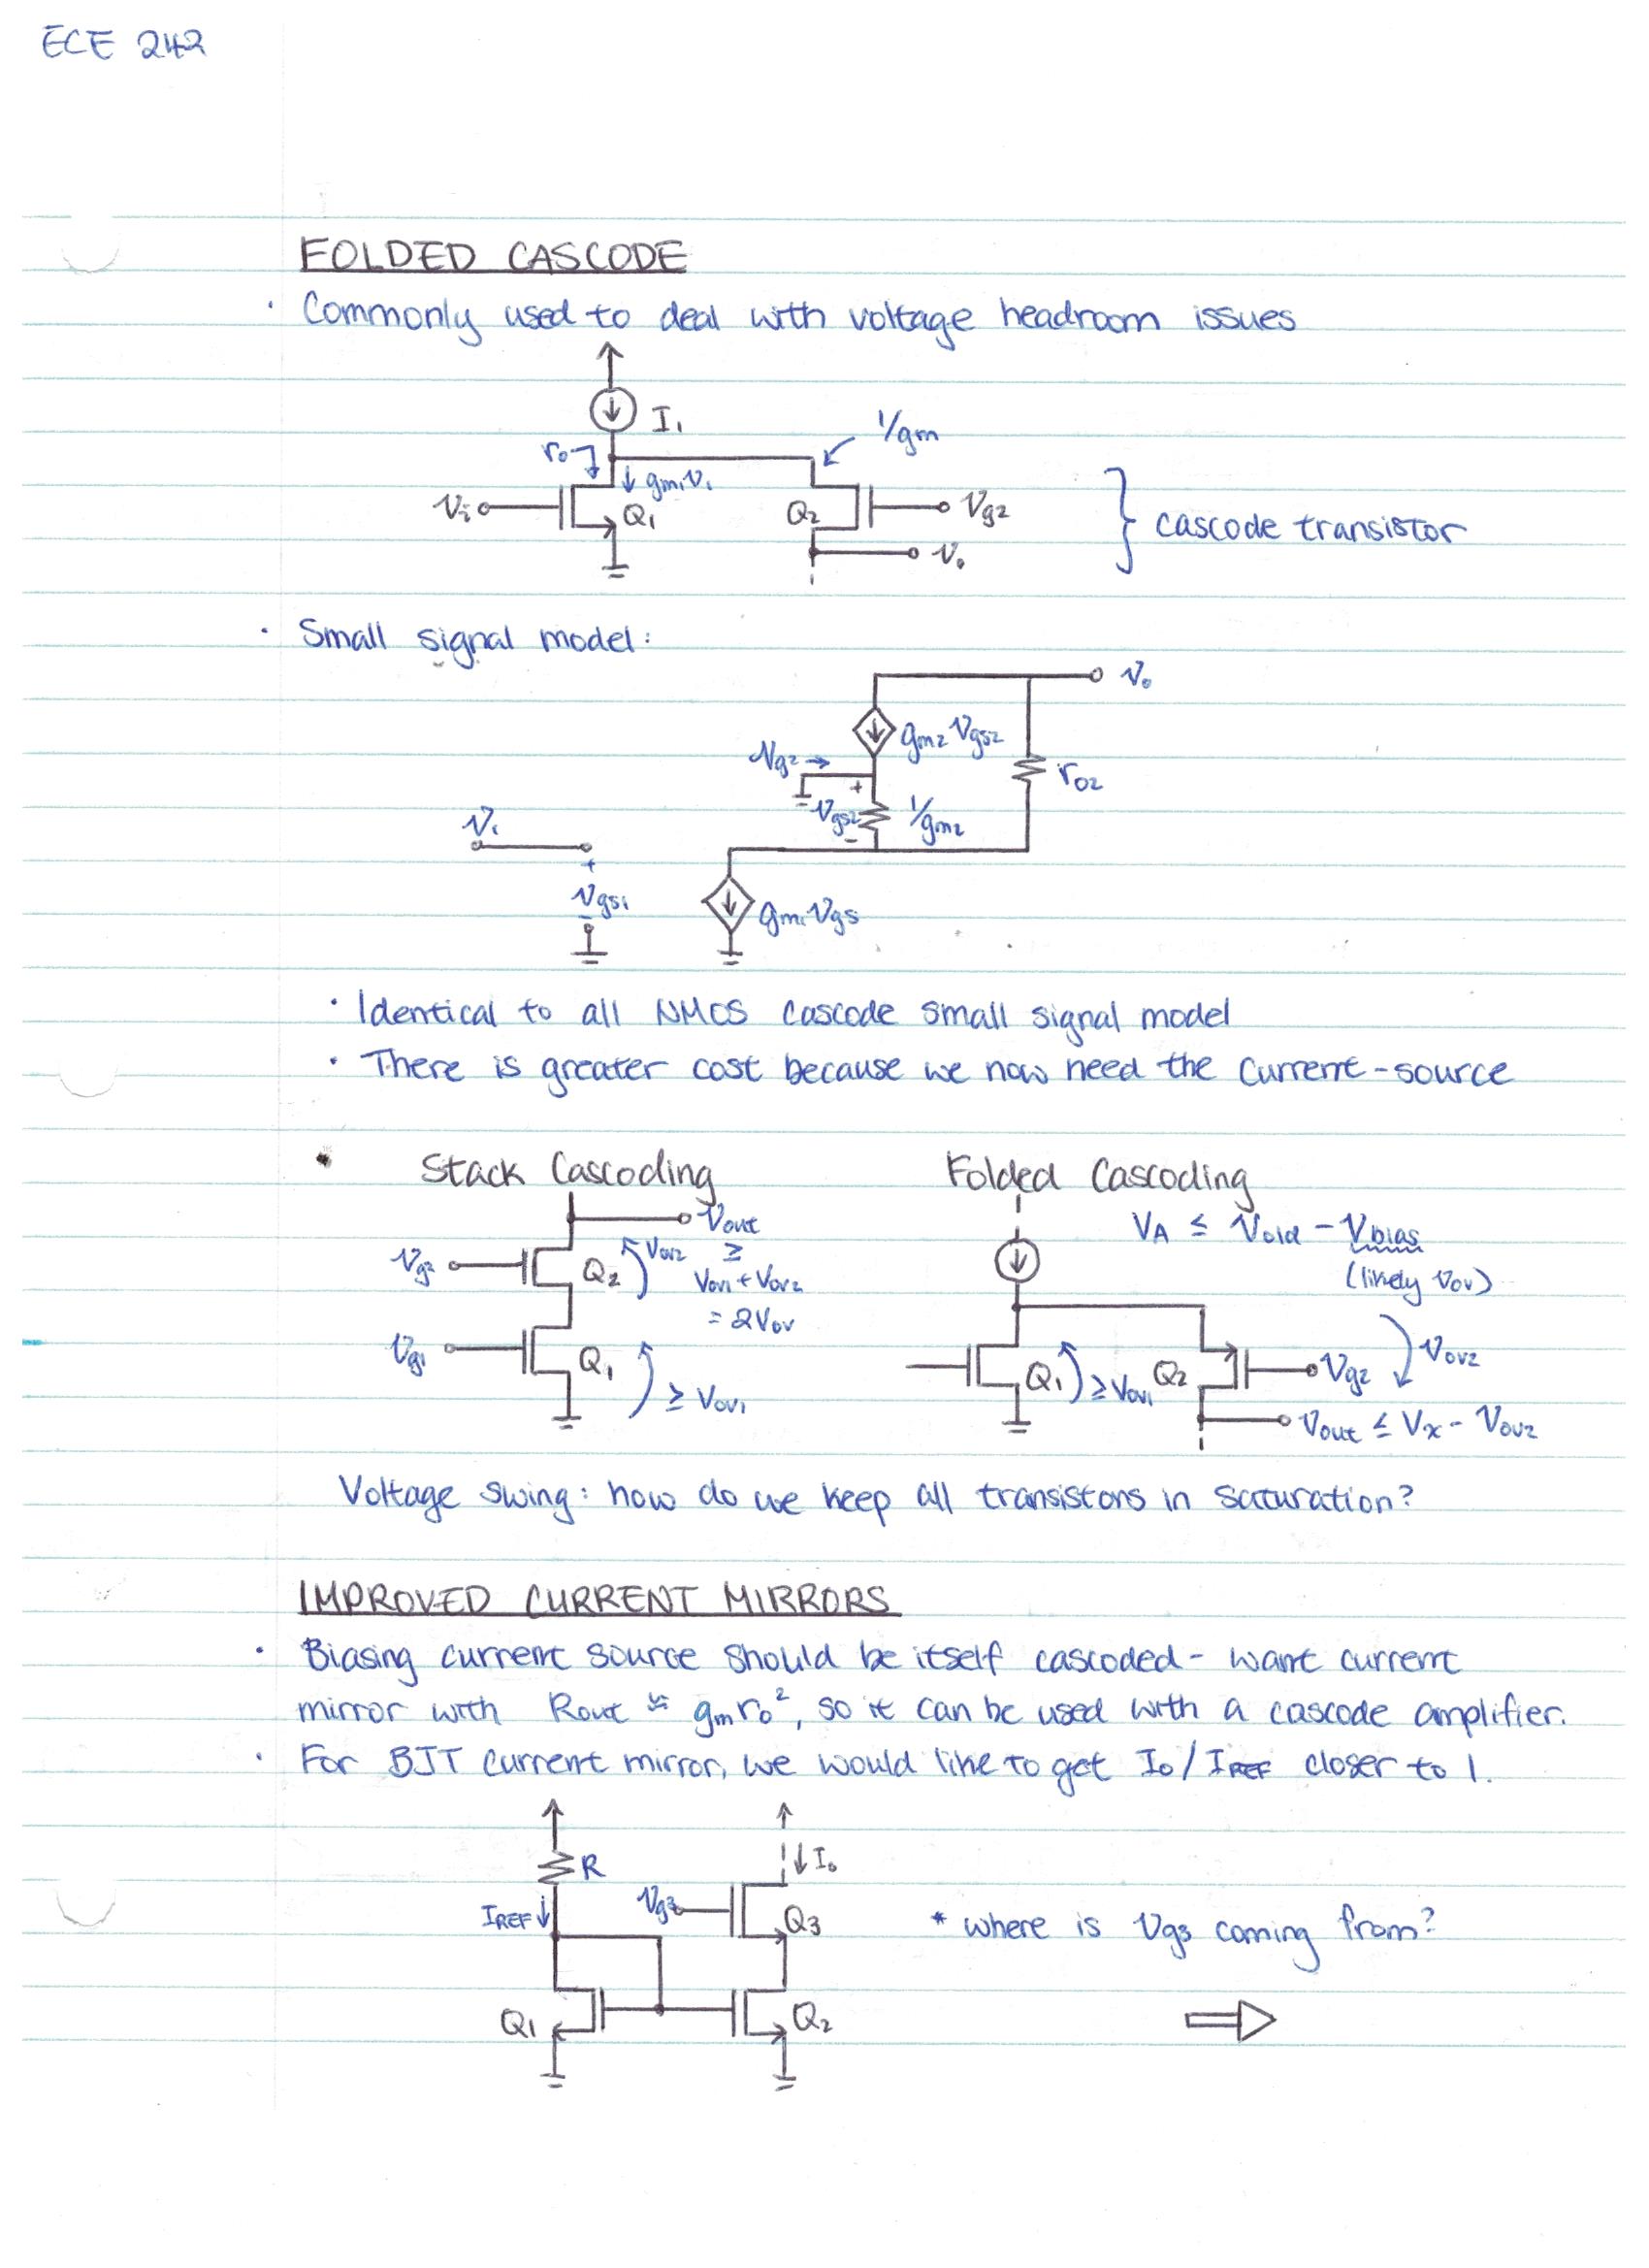 ECE 242
FOLDED CASCODE
· Commonly used to deal with voltage headroom issues
I₁
1/gm
r₀
gm₁v₁
Vi
Q₁
Q₂
Vg2
cascode transistor
V₀
· Small signal model:
V₀
gm2 Vgs2
Vg2 →
ro2
+
Vgs2
-
1/gm2
Vi
+
Vgs1
-
gm1 Vgs
· Identical to all NMOS cascode small signal model
· There is greater cost because we now need the current-source
· Stack Cascoding
Vout
≥
Vov1 + Vov2
= 2Vov
Vov2
Vg2
Q₂
Vg1
Q₁
≥ Vov1
Folded Cascoding
VA ≤ Vdd - Vbias
(likely Vov)
Q₁
≥ Vov1
Q₂
Vg2
Vov2
Vout ≤ Vx - Vov2
Voltage swing: how do we keep all transistors in saturation?
IMPROVED CURRENT MIRRORS
· Biasing current source should be itself cascoded - want current
mirror with Rout ≈ gmro², so it can be used with a cascode amplifier.
· For BJT current mirror, we would like to get Io/IREF closer to 1.
R
I₀
IREF
Vg3
Q3
* where is Vg3 coming from?
Q₁
Q₂